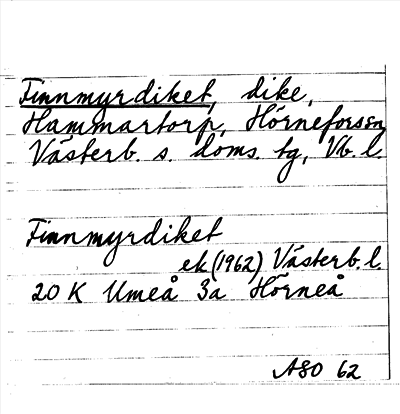 Finnmyrdiket, dike,
Hammartorp, Hörneforssn
Västerb. s. doms. tg, Vb. l.
Finnmyrdiket
ek (1962) Västerb. l.
20 K Umeå 3a Hörneå
ASO 62